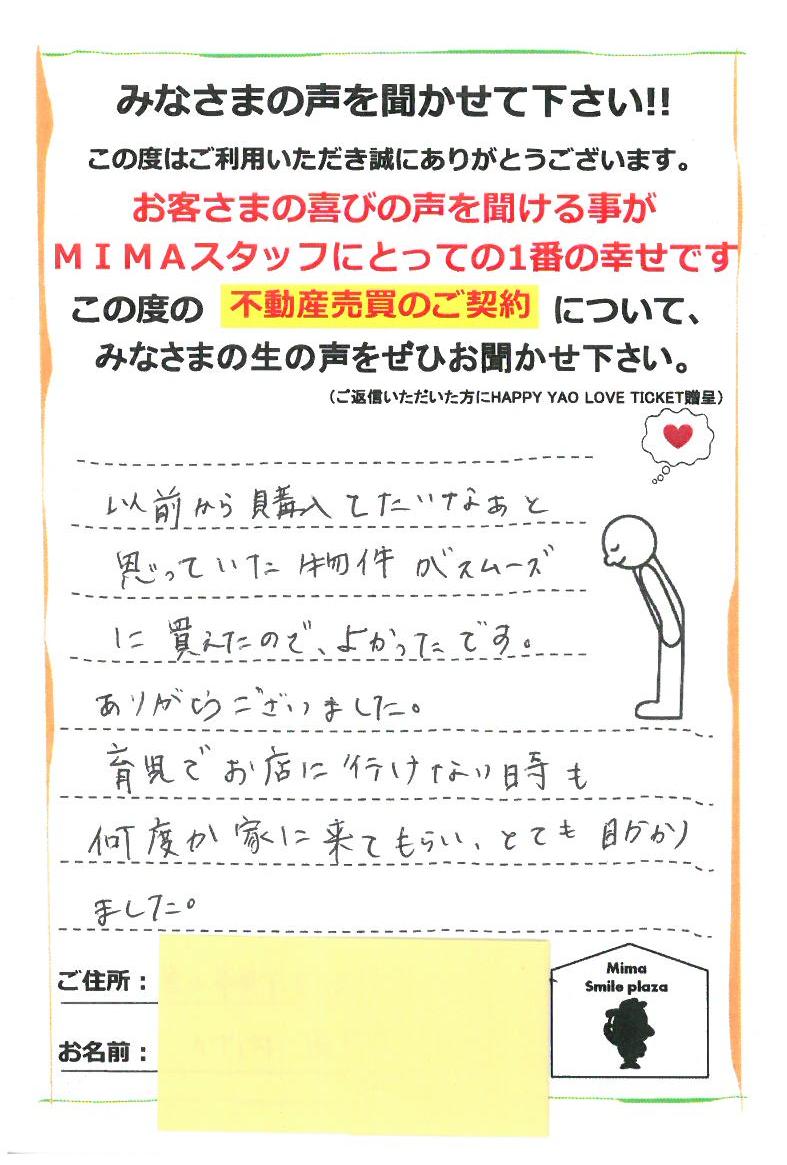 みなさまの声を聞かせて下さい!!
この度はご利用いただき誠にありがとうございます。
お客さまの喜びの声を聞ける事が
ＭＩＭＡスタッフにとっての1番の幸せです
この度の 不動産売買のご契約 について、
みなさまの生の声をぜひお聞かせ下さい。
（ご返信いただいた方にHAPPY YAO LOVE TICKET贈呈）
以前から購入したいなぁと
思っていた物件がスムーズ
に買えたので、よかったです。
ありがとうございました。
育児でお店に行けない時も
何度か家に来てもらい、とても助かり
ました。
ご住所：
お名前：
Mima
Smile plaza